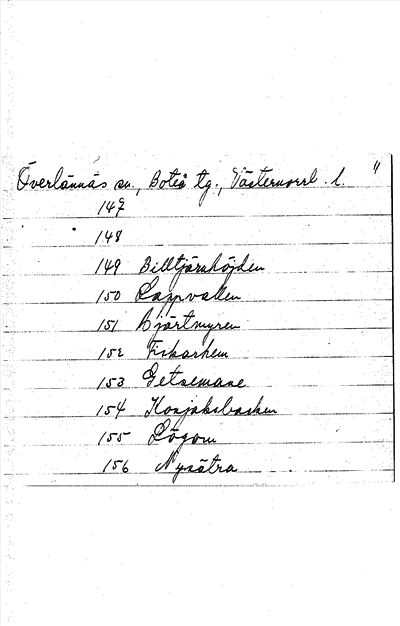 Överlännäs sn., Boteå tg., Västernorrl. l. "
147
148
149 Billtjärnhöjden
150 Lappvallen
151 Hjärtmyren
152 Fiskarhem
153 Getsemane
154 Konjaksbacken
155 Lögom
156 Nysätra